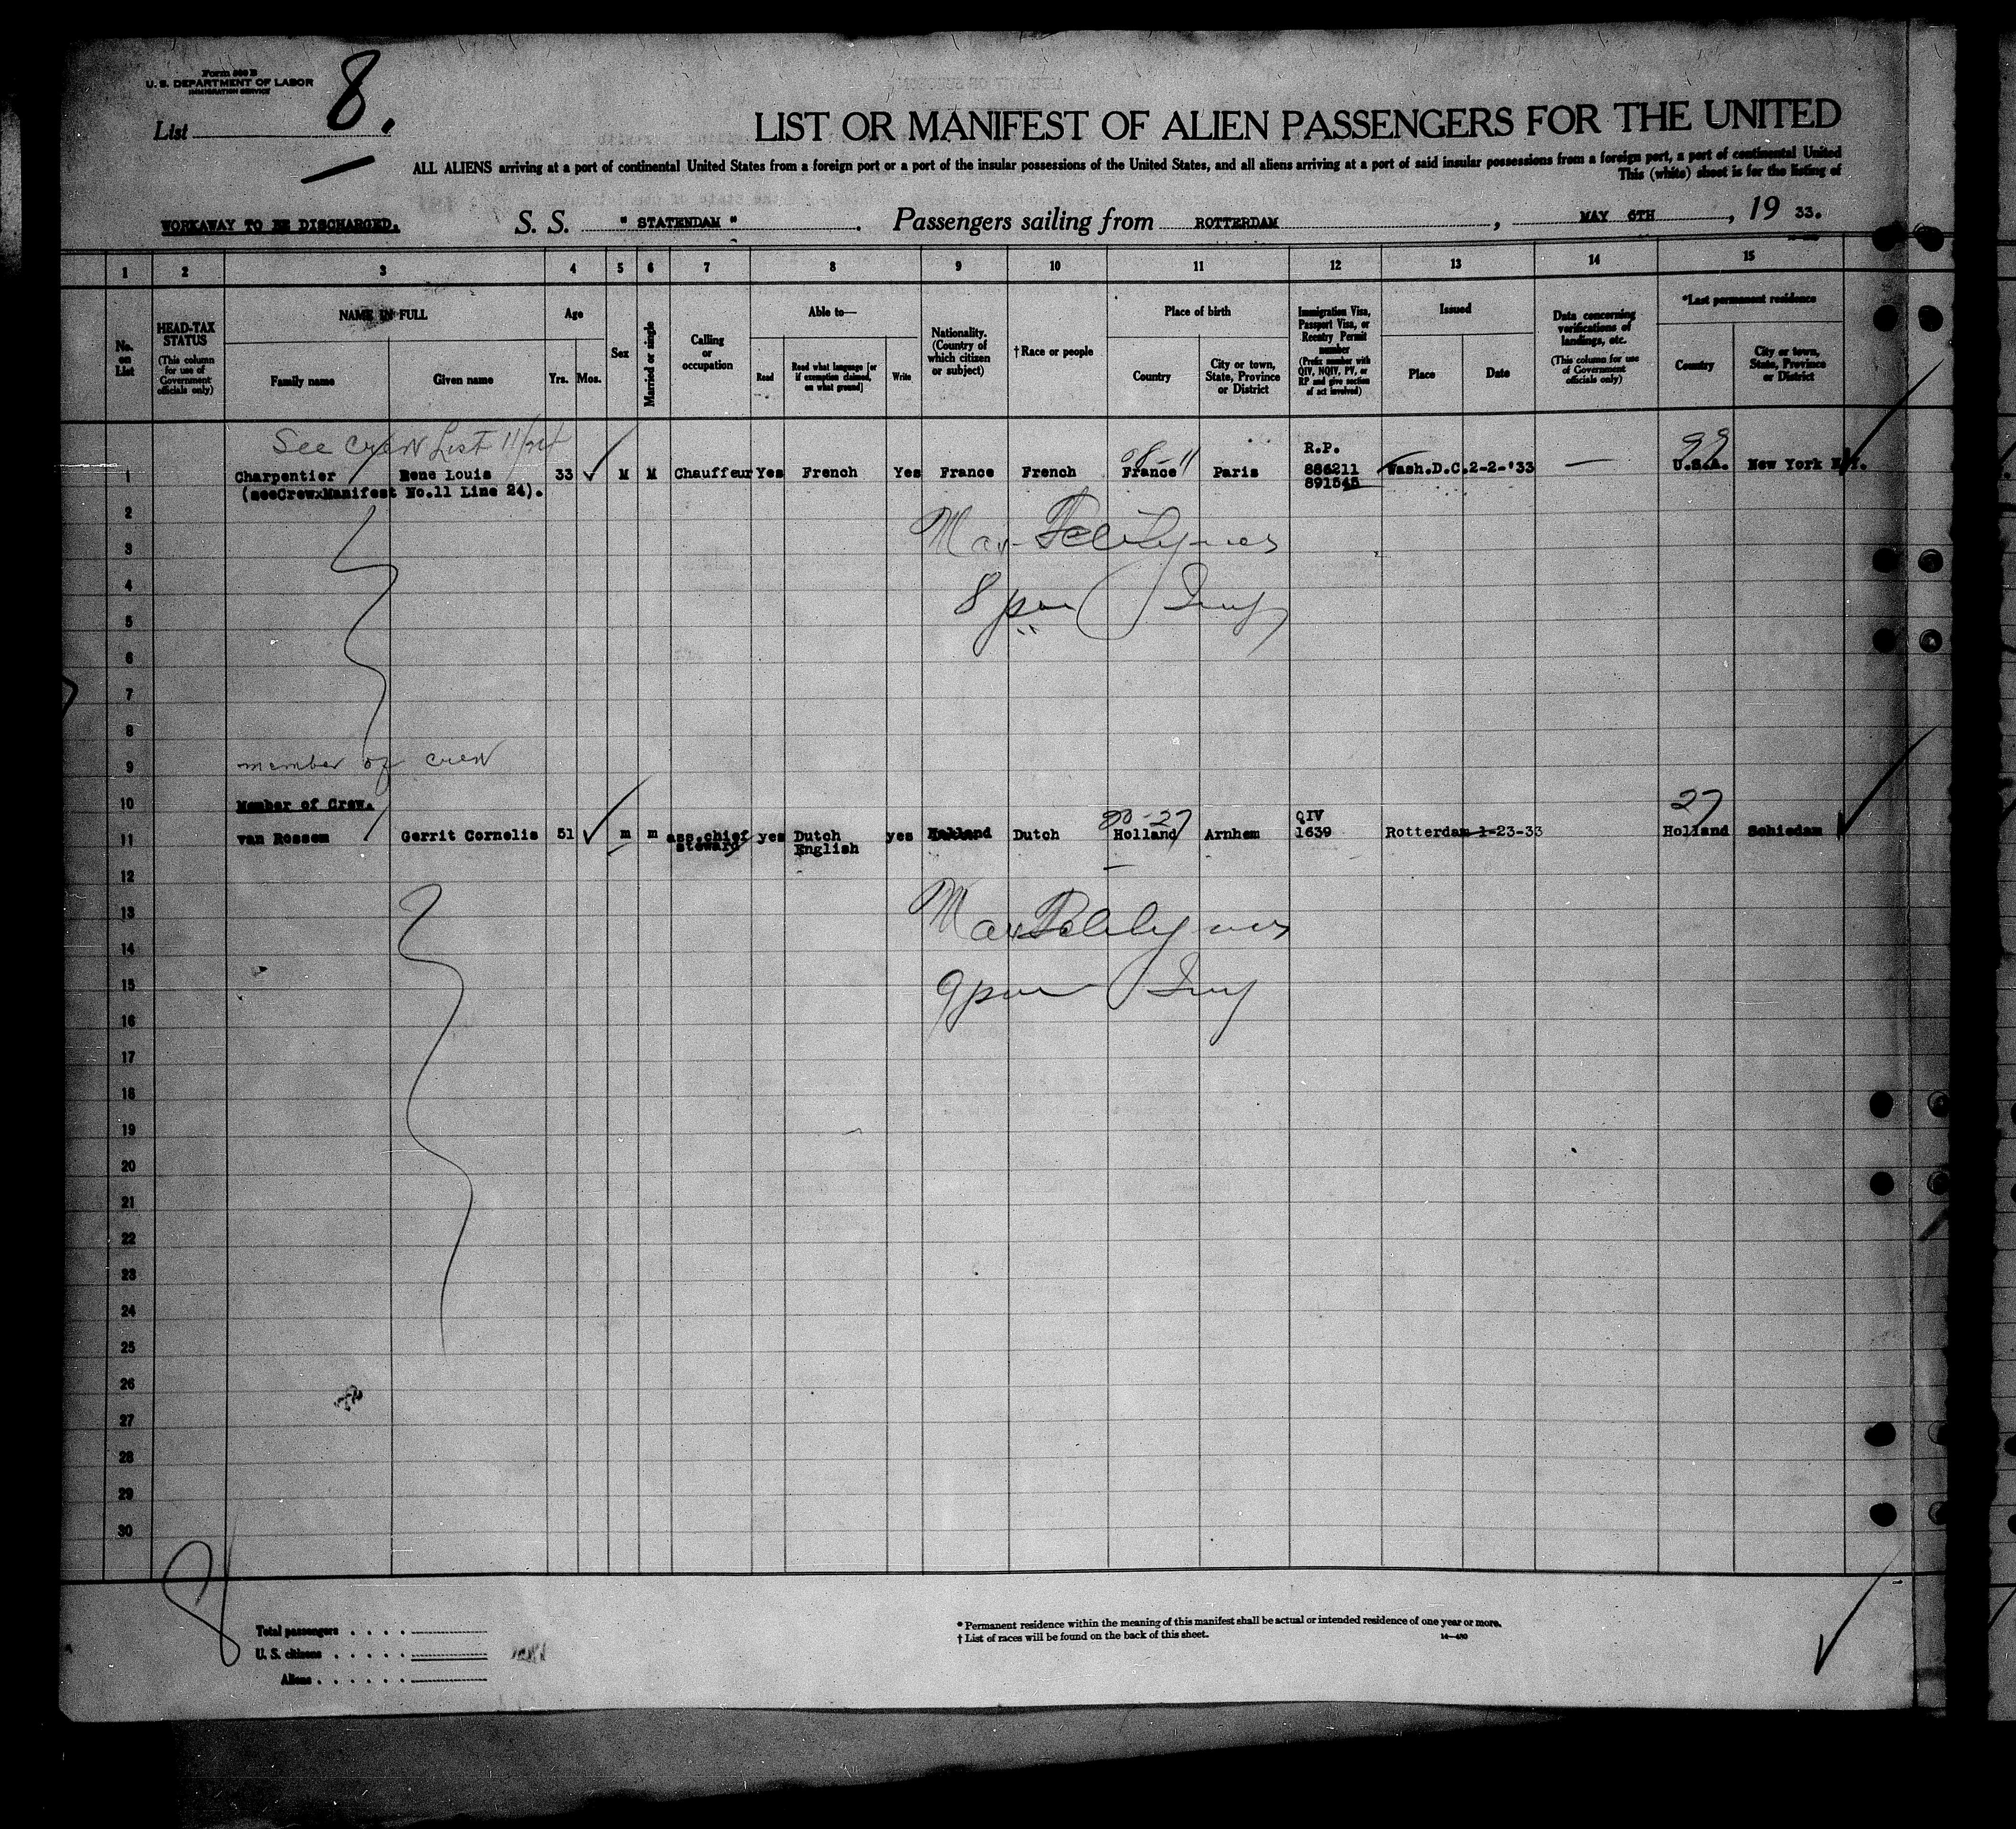 Form 500 B
U. S. DEPARTMENT OF LABOR
IMMIGRATION SERVICE
List 8.
LIST OR MANIFEST OF ALIEN PASSENGERS FOR THE UNITED
ALL ALIENS arriving at a port of continental United States from a foreign port or a port of the insular possessions of the United States, and all aliens arriving at a port of said insular possessions from a foreign port, a port of continental United
This (white) sheet is for the listing of
WORKAWAY TO BE DISCHARGED. S. S. "STATENDAM". Passengers sailing from ROTTERDAM, MAY 6TH, 19 33.
1 2 3 4 5 6 7 8 9 10 11 12 13 14 15
No. on List
HEAD-TAX STATUS (This column for use of Government officials only)
NAME IN FULL
Family name Given name
Age
Yrs. Mos.
Sex
Married or single
Calling or occupation
Able to—
Read Read what language [or if exemption claimed, on what ground] Write
Nationality. (Country of which citizen or subject)
†Race or people
Place of birth
Country City or town, State, Province or District
Immigration Visa, Passport Visa, or Reentry Permit number (Prefix number with QIV, NQIV, PV, or RP and give section of act involved)
Issued
Place Date
Data concerning verifications of landings, etc. (This column for use of Government officials only)
*Last permanent residence
Country City or town, State, Province or District
See Crew List 11/24
08-11 R.P. 99
1 Charpentier Rene Louis 33 M M Chauffeur Yes French Yes France French France Paris 886211 Wash.D.C. 2-2-'33 — U.S.A. New York N.Y.
(seeCrewxManifest No.11 Line 24). 891545
2
3
4 8 pm
5
6
7
8
9 member of crew
10 Member of Crew. 27
QIV
11 van Rossem Gerrit Cornelis 51 m m ass.chief steward yes Dutch English yes Holland Dutch Holland Arnhem 1639 Rotterdam 1-23-33 Holland Schiedam
12
13
14
15 9 pm
16
17
18
19
20
21
22
23
24
25
26
27
28
29
30
Total passengers
U. S. citizens
Aliens
* Permanent residence within the meaning of this manifest shall be actual or intended residence of one year or more.
† List of races will be found on the back of this sheet.
14—480